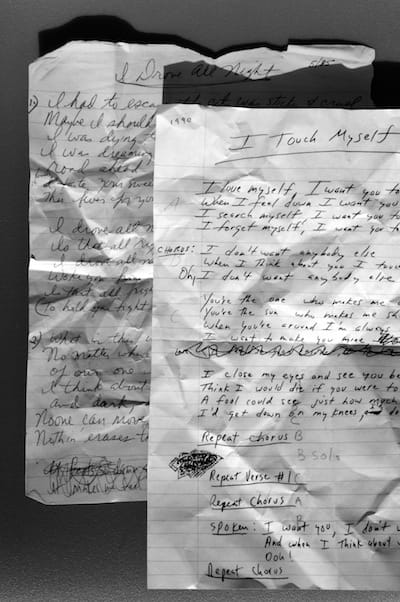 I Drove All Night
5/85
1) I had to esca
Maybe I should
I was dying t
I was dreaming
road ahead
this fever for yo
I drove all n
Is that all rig
I drove all n
to hold you tight
2) What in this w
No matter wha
of our one
I think about
and dark
Noone can move
Nothin erases
1990
I Touch Myself
I love myself, I want you to
When I feel down I want you
I search myself, I want you to
I forget myself, I want you to
CHORUS: I don't want anybody else
When I think about you I touc
Oh, I don't want anybody else
You're the one who makes me
You're the sun who makes me sh
When you're around I'm always
I want to make you mine
I close my eyes and see you be
Think I would die if you were to
A fool could see just how much
I'd get down on my knees, do
Repeat chorus B
B solo
Repeat Verse #1 C
Repeat Chorus A
B
SPOKEN: I want you, I don't w
And when I think about
Ooh!
Repeat Chorus